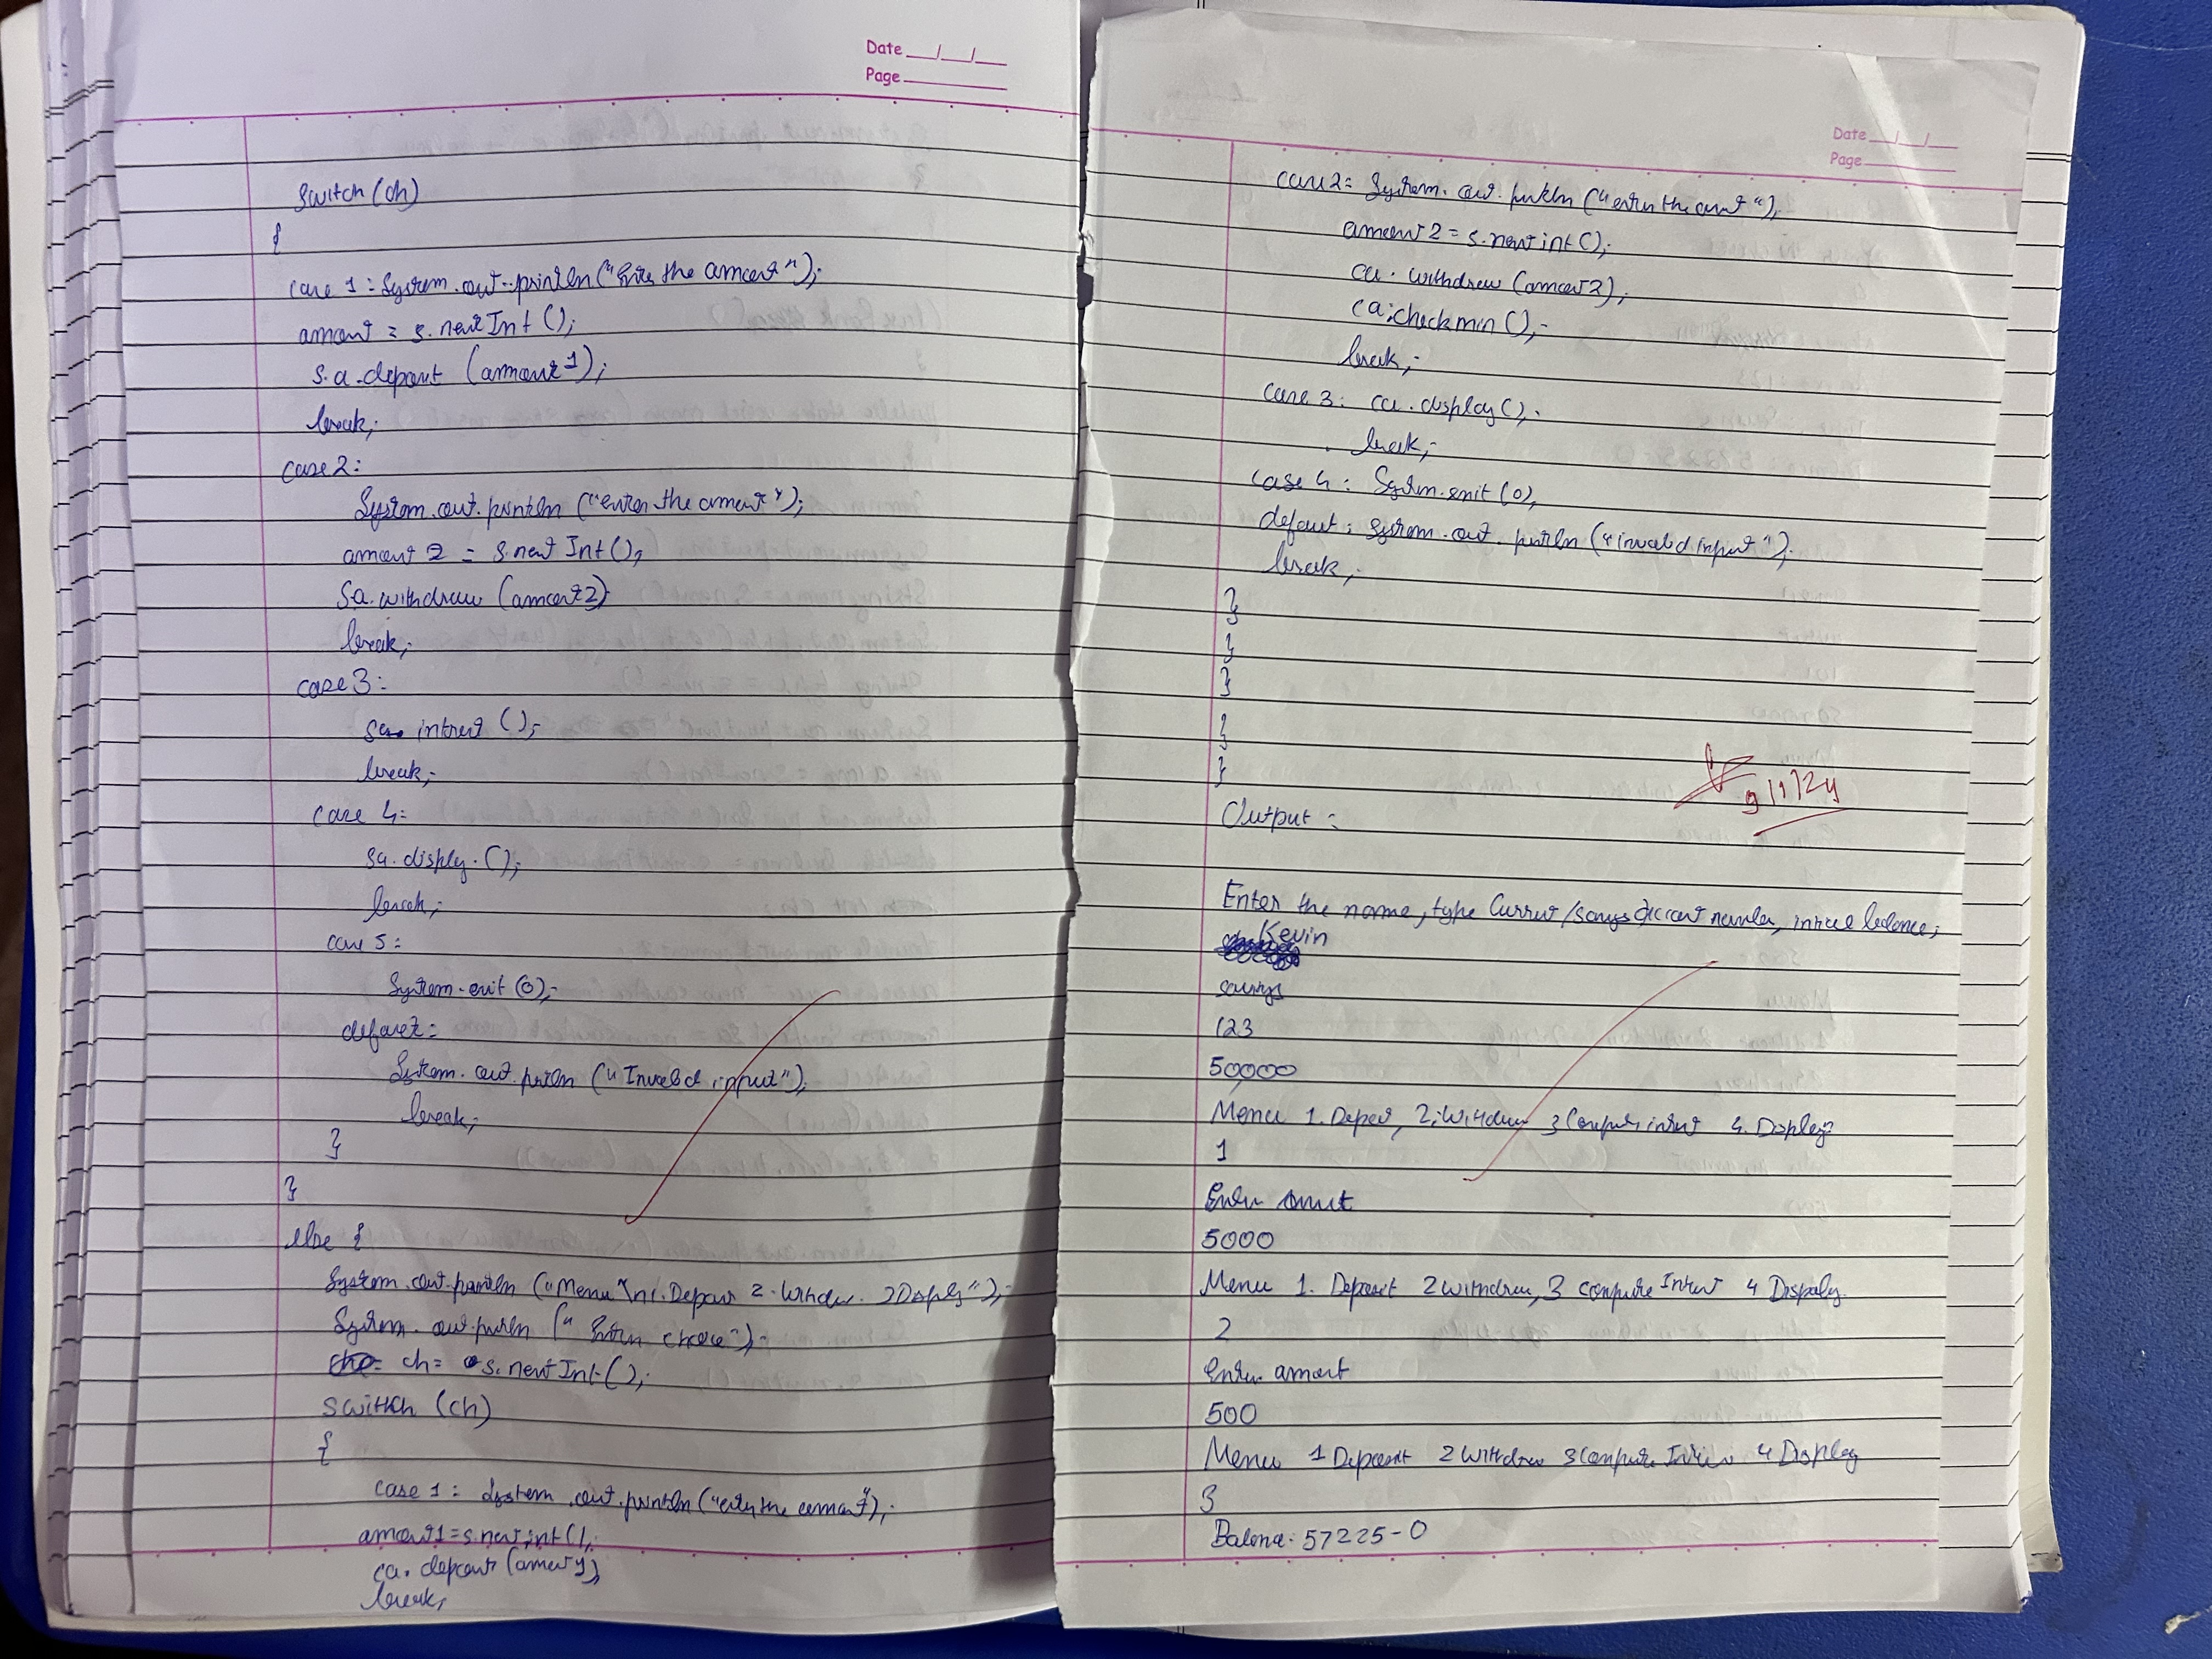 Date __/__/__
Page ______
switch(ch)
{
case 1: System.out.println("Enter the amount");
amount = s.nextInt();
s.a.deposit (amount1);
break;
case 2:
System.out.println ("enter the amount");
amount 2 = s.next Int();
Sa.withdraw (amount2)
break;
case 3:
sa. intrest ();
break;
case 4:
sa. display. ();
break;
case 5:
System.exit (0);
default:
System.out.println ("Invalid input");
break;
}
}
else {
System.out.println ("Menu \n1.Deposit 2.Withdraw. 3Display");
System.out.println (" Enter choice");
ch = s.nextInt.();
Switch (ch)
{
case 1: System.out.println ("enter the amount");
amount1 = s.next.int();
ca. deposit (amount1)
break;
Date __/__/__
Page ______
case 2: System.out.println ("enter the amount");
amount 2 = s.next int();
ca. withdraw (amount2);
ca.checkmin ();
break;
case 3: ca. display();
break;
case 4: System.exit (0);
default: System.out.println ("invalid input");
break;
}
}
}
}
}
Output:
9/1/24
Enter the name, type Current/savings Account number, initial balance;
Kevin
savings
123
50000
Menu 1. Deposit, 2. Withdraw 3 Compute interest 4. Display
1
Enter amount
5000
Menu 1. Deposit 2 withdraw, 3 compute Interest 4 Display
2
Enter amount
500
Menu 1 Deposit 2 withdraw 3 Compute Interest 4 Display
3
Balance: 57225-0